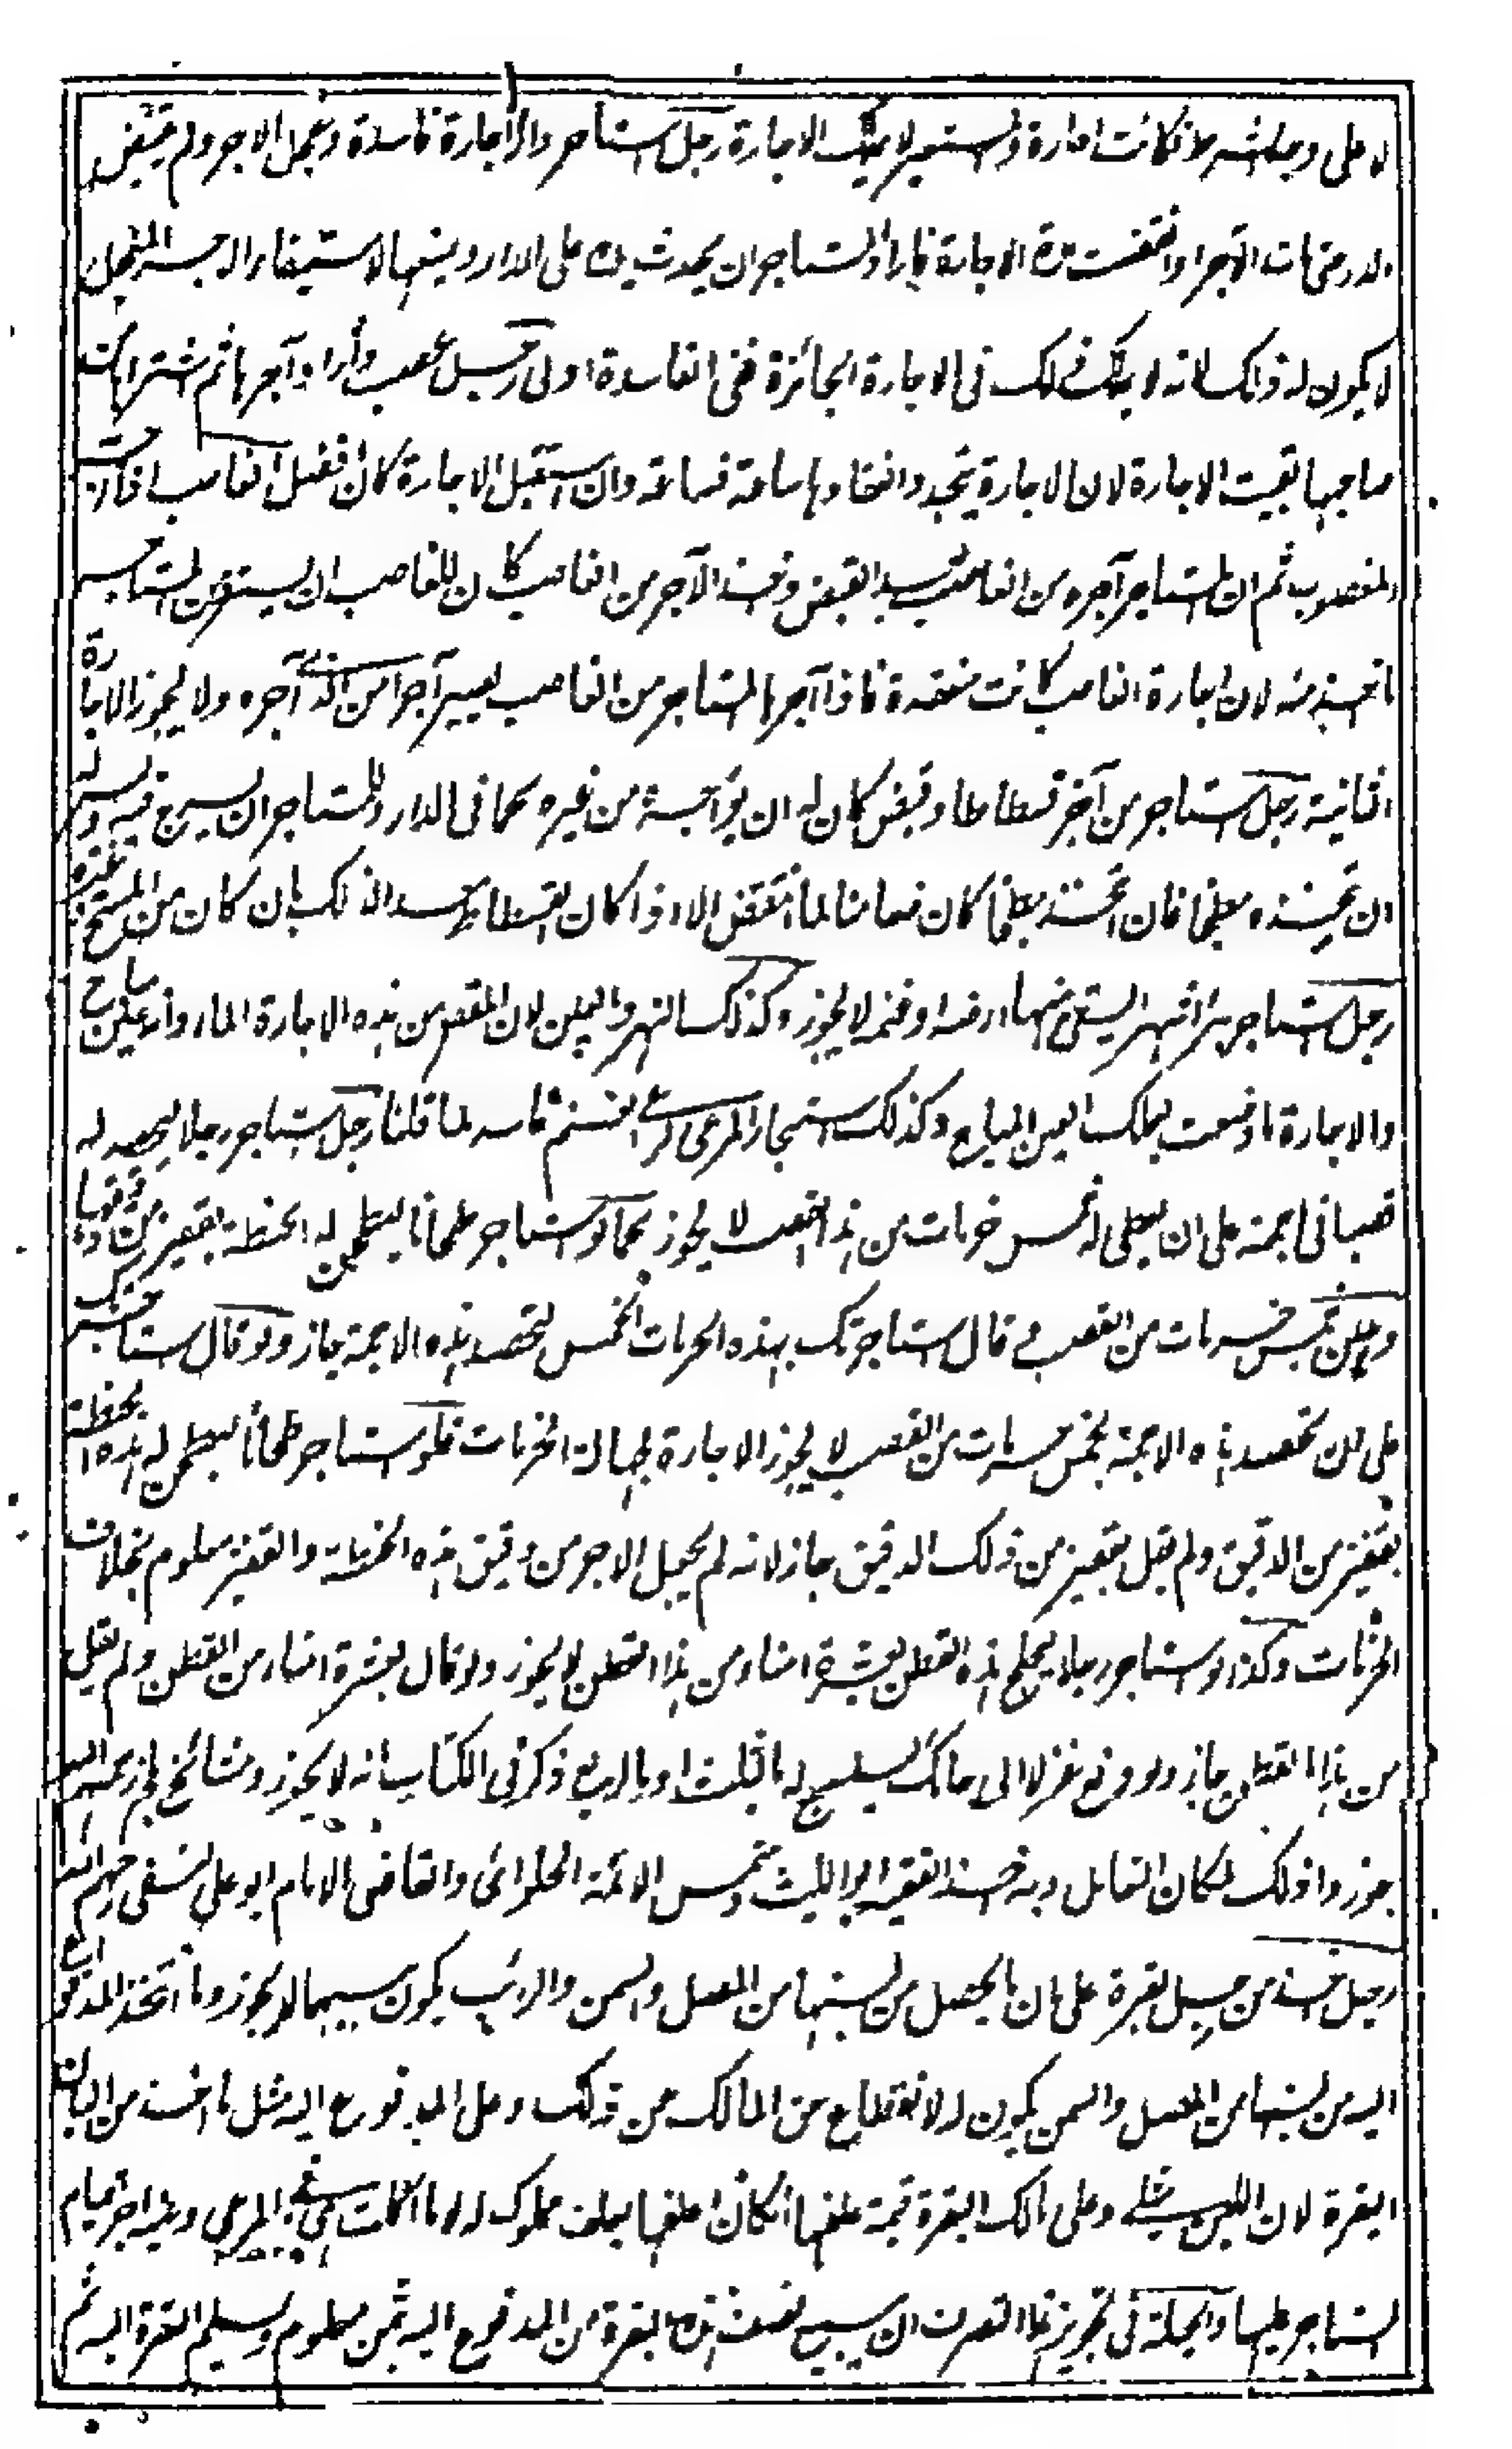 لا على وجه الشرط كانت اعارة والمستعير لا يملك الاجارة رجل استاجر دارا اجارة فاسدة وعجل الاجر ولم يقبض
الدار حتى مات الآجر او انقضت مدة الاجارة فاراد المستاجر ان يحدث يده على الدار ويمنعها لاستيفاء الاجر المعجل
لا يكون له ذلك لانه لا يملك ذلك فى الاجارة الجائزة ففى الفاسدة اولى رجل غصب دارا وآجرها ثم اشتراها من
صاحبها بقيت الاجارة لان الاجارة يتجدد انعقادها ساعة فساعة وان استقبل الاجارة كان افضل الغاصب اذا آجر
المغصوب ثم ان المستاجر آجره من الغاصب بعد القبض واخذ الآجر من الغاصب كان للغاصب ان يسترد من المستاجر
ما اخذ منه لان اجارة الغاصب كانت منعقدة فاذا آجرها المستاجر من الغاصب يصير آجرا من الذى آجره ولا يجوز الاجارة
الثانية رجل استاجر من آخر فسطاطا وقبض كان له ان يؤاجره من غيره كما فى الدار وللمستاجر ان يسرج فيه وليس له
ان يتخذه مطبخا فان اتخذ مطبخا كان ضامنا لما انتقض الا اذا كان الفسطاط معدا لذلك بان كان من المسح
رجل استاجر بئرا شهرا ليستقى منها ارضه او غنمه لا يجوز وكذلك النهر والعين لان المقصود من هذه الاجارة الماء وانه عين مباح
والاجارة ما وضعت لملك العين المباح وكذلك استيجار المرعى لرعى الغنم فاسد لما قلنا رجل استاجر رجلا ليحصد له
قصبا فى اجمة على ان يعطى له خمس خرمات من هذا القصب لا يجوز كما لو استاجر طحانا ليطحن له الحنطة بقفيز من دقيقها
ولو عين خمس خرمات من القصب وقال استاجرتك بهذه الحرمات الخمس لتحصد هذه الاجمة جاز ولو قال استاجرتك
على ان تحصد هذه الاجمة بخمس خرمات من القصب لا يجوز الاجارة لجهالة الخرمات فلو استاجر طحانا ليطحن له هذه الحنطة
بقفيز من الدقيق ولم يقل بقفيز من ذلك الدقيق جاز لانه لم يجعل الاجر من دقيق هذه الحنطة والقفيز معلوم بخلاف
الخرمات وكذا لو استاجر رجلا ليحلج هذه القطن بعشرة امناء من هذا القطن لا يجوز ولو قال بعشرة امناء من القطن ولم يقل
من هذا القطن جاز ولو دفع غزلا الى حائك لينسج له بالثلث او بالربع ذكر فى الكتاب انه لا يجوز ومشائخ بلخ رحمهم الله
جوزوا ذلك لمكان التعامل وبه اخذ الفقيه ابو الليث وشمس الائمة الحلوائى والقاضى الامام ابو على النسفى رحمهم الله
رجل اخذ من رجل بقرة على ان ما يحصل من لبنها من المصل والسمن والرائب يكون بينهما لا يجوز وما اتخذ المدفوع
اليه من لبنها من المصل والسمن يكون له لانقطاع حق المالك عن ذلك وعلى المدفوع اليه مثل ما اخذ من البان
البقرة لان اللبن مثلى وعلى مالك البقرة قيمة علفها ان كان علفها بعلف مملوك له لا ما اكلت فى المرعى وعليه اجر قيام
المستاجر عليها والحيلة فى تجويز هذا التصرف ان يبيع نصف هذه البقرة من المدفوع اليه بثمن معلوم ويسلم البقرة اليه ثم